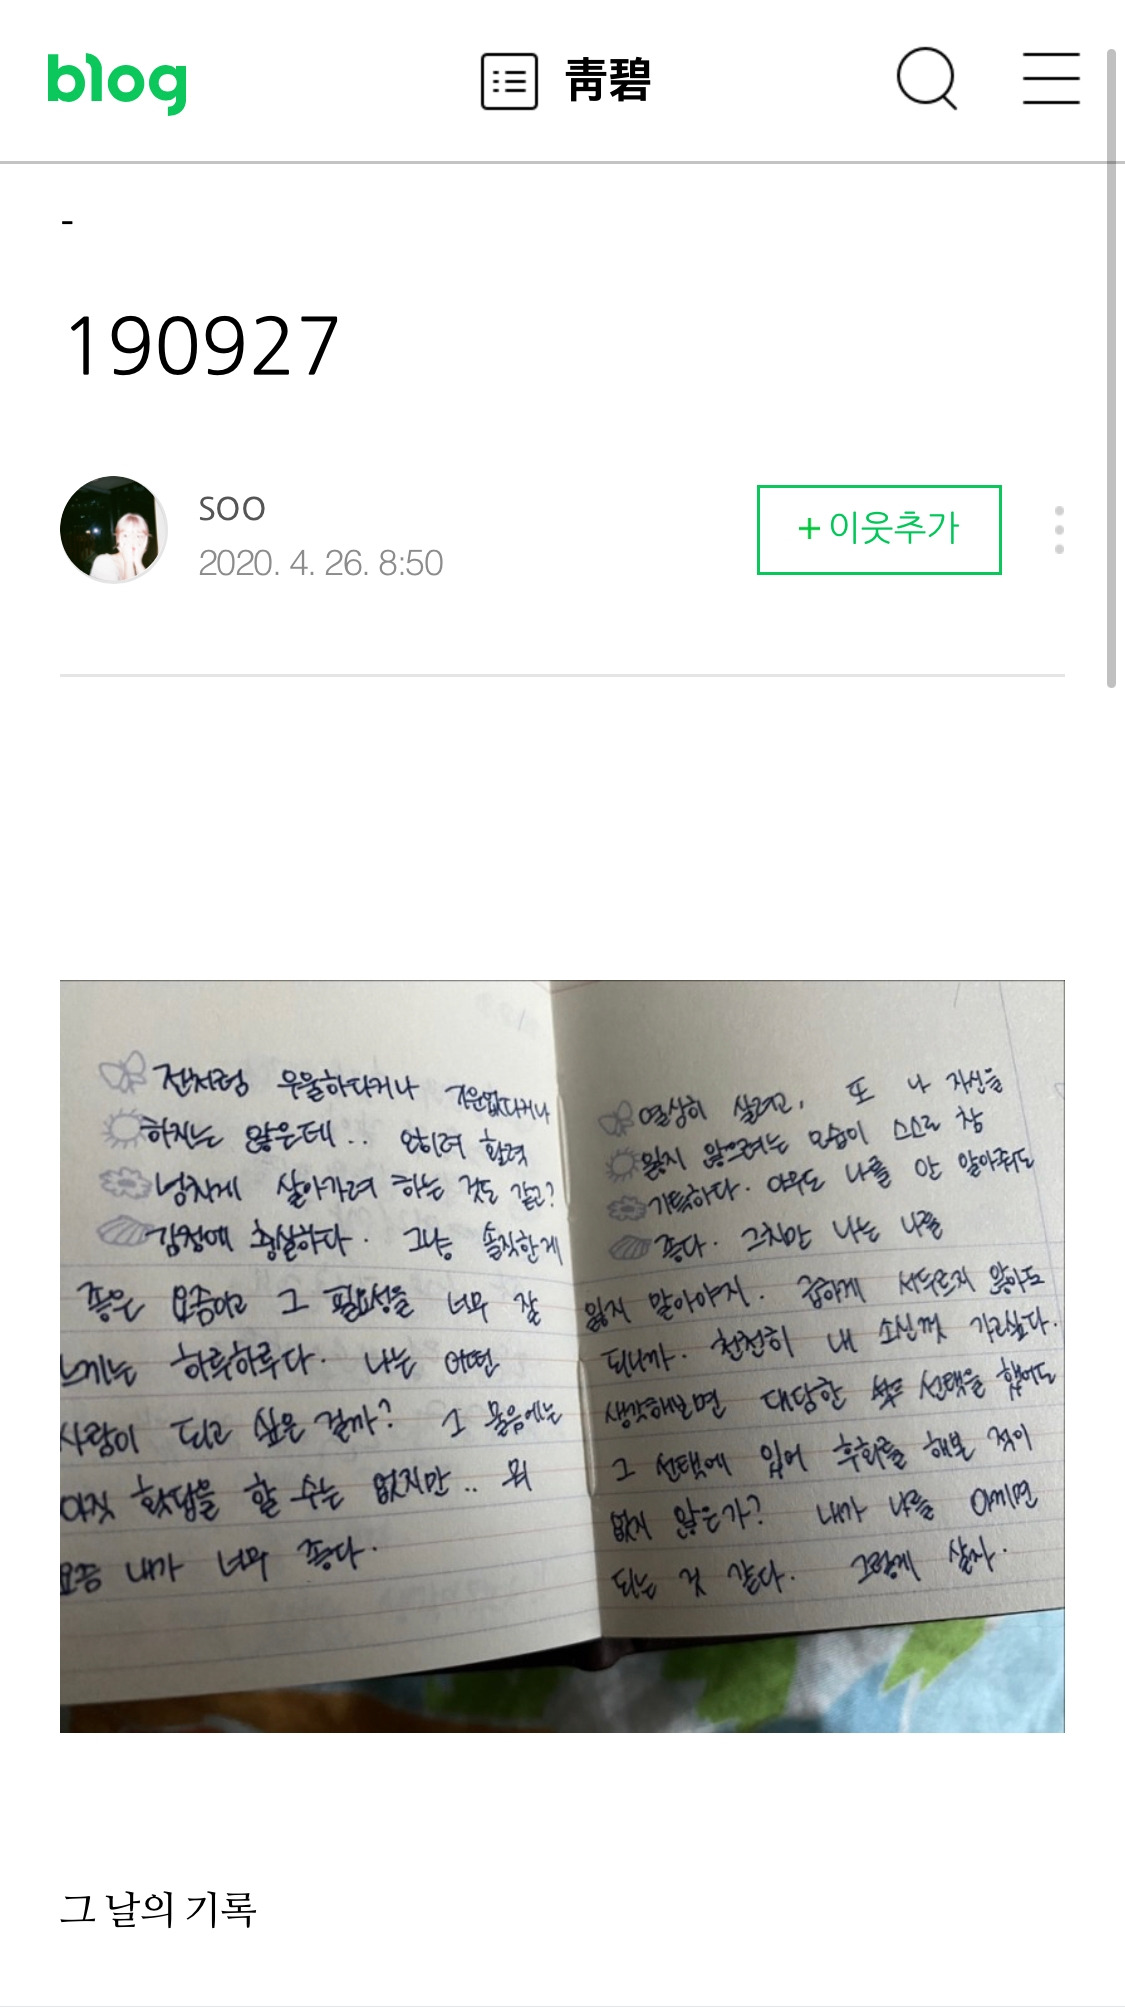 blog
靑碧
-
190927
soo
2020. 4. 26. 8:50
+ 이웃추가
전처럼 우울하다거나 기운없다거나
하지는 않은데.. 오히려 활력
넘치게 살아가려 하는 것도 같고?
감정에 충실하다. 그냥 솔직한게
좋은 요즘이고 그 필요성을 너무 잘
느끼는 하루하루다. 나는 어떤
사람이 되고 싶은 걸까? 그 물음에는
아직 확답을 할 수는 없지만.. 뭐
요즘 내가 너무 좋다.
열심히 살려고, 또 나 자신을
잃지 않으려는 모습이 스스로 참
기특하다. 아무도 나를 안 알아줘도
좋다. 그치만 나는 나를
잃지 말아야지. 급하게 서두르지 않아도
되니까. 천천히 내 소신껏 가고싶다.
생각해보면 대담한 선택을 했어도
그 선택에 있어 후회를 해본 적이
없지 않은가? 내가 나를 아끼면
되는 것 같다. 그렇게 살자.
그 날의 기록